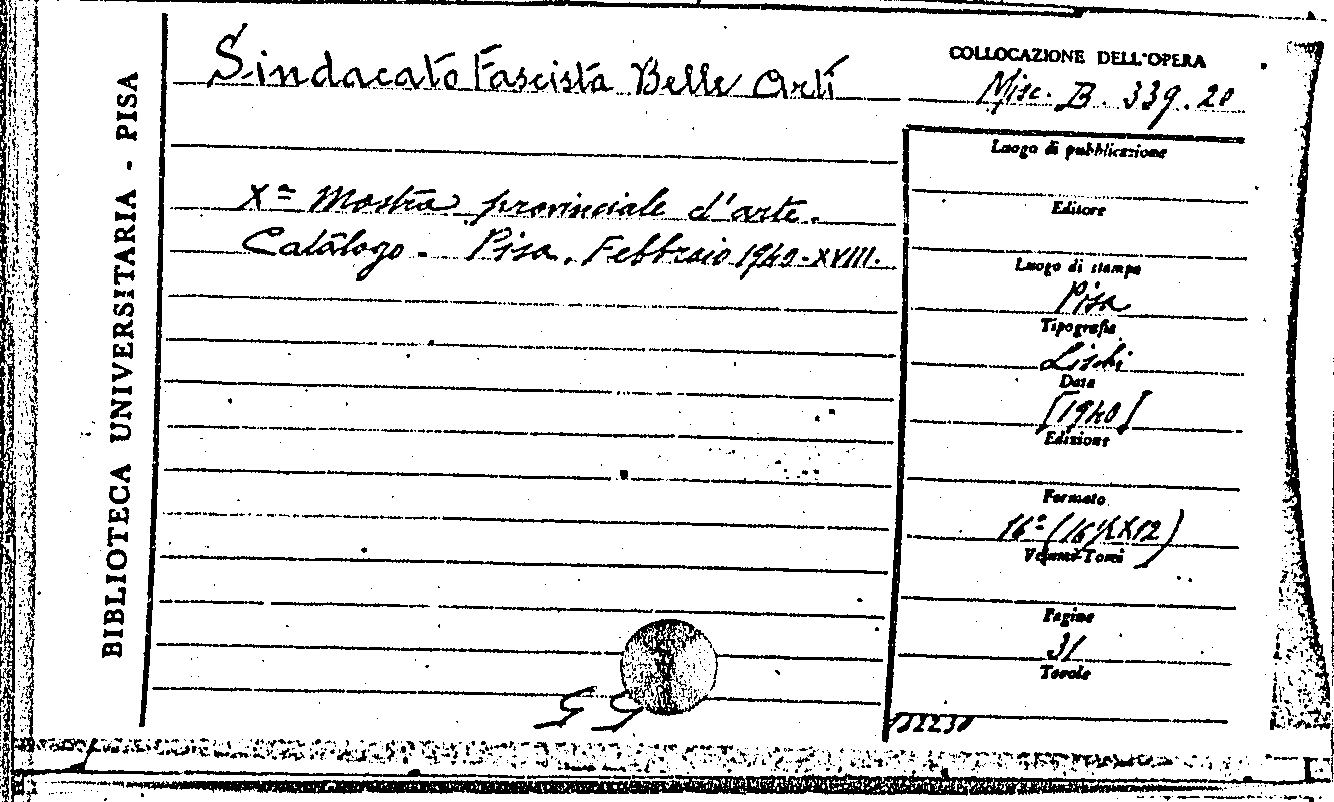 BIBLIOTECA UNIVERSITARIA - PISA
Sindacato Fascista Belle Arti
Xª Mostra provinciale d'arte.
Catalogo - Pisa, Febbraio 1940-XVIII.
COLLOCAZIONE DELL'OPERA
Misc. B. 339.20
Luogo di pubblicazione
Editore
Luogo di stampa
Pisa
Tipografia
Lischi
Data
[1940]
Edizione
Formato
16º (16½X12)
Volumi-Tomi
Pagine
31
Tavole